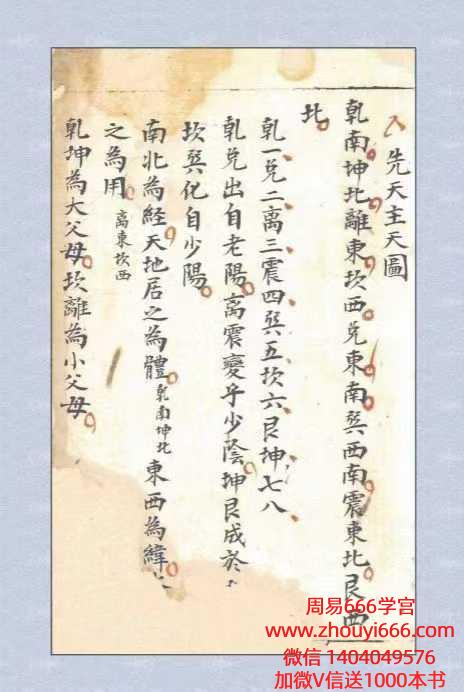 先天主天圖
乾南坤北離東坎西兌東南巽西南震東北艮西
北
乾一兌二离三震四巽五坎六艮坤七八
乾兌出自老陽离震變乎少陰坤艮成於
坎巽化自少陽
南北為経天地居之為體乾南坤北東西為緯
之為用离東坎西
乾坤為大父母坎離為小父母
周易666学宫
www.zhouyi666.com
微信 1404049576
加微V信送1000本书